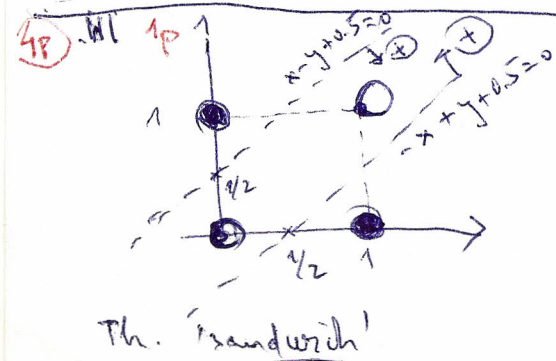 4p .W1 1p 1
x-y+0.5=0 + +
-x+y+0.5=0
1
1/2
1/2 1
Th. 'sandwich'